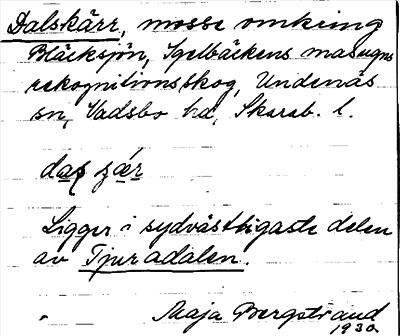 Dalskärr, mosse omkring
Bläcksjön, Igelbäckens masugns
rekognitionsskog, Undenäs
sn, Vadsbo hd, Skarab. l.
Ligger i sydvästligaste delen
av Tjuradalen.
Maja Bergstrand
1930